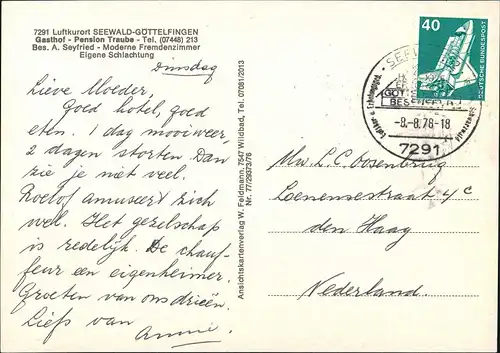 7291 Luftkurort SEEWALD-GÖTTELFINGEN
Gasthof - Pension Traube - Tel. (07448) 213
Bes. A. Seyfried - Moderne Fremdenzimmer
Eigene Schlachtung
Dinsdag
Lieve Moeder,
Goed hotel, goed
eten. 1 dag mooi weer,
2 dagen storten. Dan
zie je niet veel.
Roelof amuseert zich
wel. Het gezelschap
is redelijk. De chauf-
feur een eigenheimer.
Groeten van ons drieën.
Liefs van
Annie.
Ansichtskartenverlag W. Feldmann, 7547 Wildbad, Tel. 07081/2013
Nr. 77/29373/76
40
DEUTSCHE BUNDESPOST
-8.-8.78-18
7291
Mw. L.C.
Loenensestraat 4c
den Haag
Nederland.